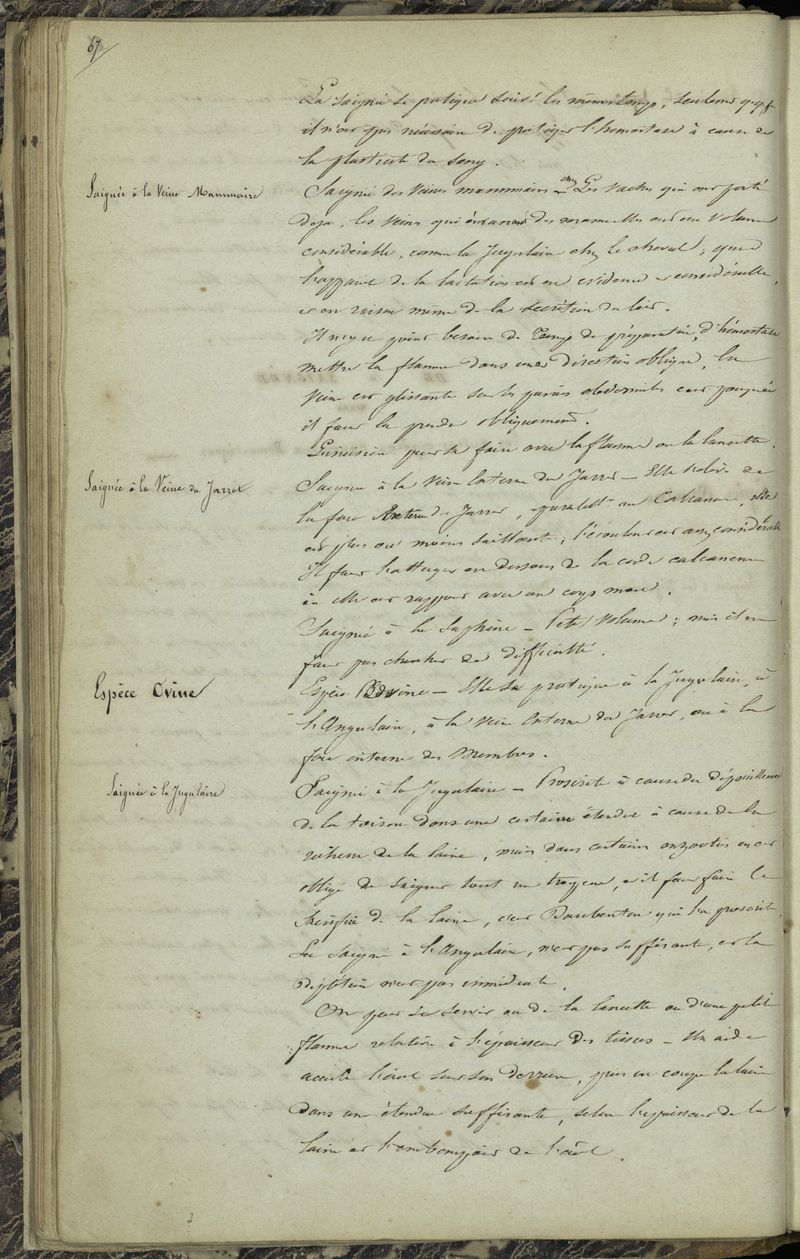 67
La saignée se pratique suivt les mêmes temps, seulement
il n'est pas nécessaire de pratiquer l'hémostase à cause de
la plasticité du sang.
Saignée à la Veine Mammaire
Saignée des veines mammaires chez Les vaches qui ont porté
déja, les veines qui des mamelles ont un volume
considérable, comme la Jugulaire chez le cheval, quand
l'appareil de la lactation est en evidence et considérable,
et en raison même de la secrétion du lait.
Il n'y a point besoin de temps de préparation, d'hémostase
mettre la flamme dans une direction oblique, la
veine est glissante sur les parois abdominales c'est pourquoi
il faut la prendre obliquement.
L'incision peut se faire avec la flamme ou la lancette.
Saignée à la Veine du Jarret
Saignée à la veine Interne du Jarret — Elle de
la face Externe du Jarret, au Calcaneum, elle
est plus ou moins saillante, l'écoulement est assez considérable
Il faut l'attaquer en dessous de la corde calcaneenne
où elle est en rapport avec un corps mou.
Saignée à la Saphène — Petit Volume; mais il ne
faut pas chercher de difficulté.
Espèce Ovine
Espèce Ovine — Elle se pratique à la Jugulaire, à
l'Angulaire, à la veine Interne du Jarret, ou à la
face interne des Membres.
Saignée à la Jugulaire
Saignée à la Jugulaire — Proscrite à cause du dépouillement
de la toison dans une certaine étendue à cause de la
richesse de la laine, mais dans certaines enzooties on est
obligé de saigner tout un troupeau, et il faut faire le
sacrifice de la laine, c'est Daubenton qui l'a proscrite.
La saignée à l'Angulaire, n'est pas suffisante, et la
déplétion n'est pas immédiate.
On peut se servir ou de la lancette ou d'une petite
flamme relative à l'épaisseur des tissus — Un aide
accule l'anl sur son derrière, puis on coupe la laine
dans une étendue suffisante, selon l'epaisseur de la
laine et l'embonpoint de l'anl.